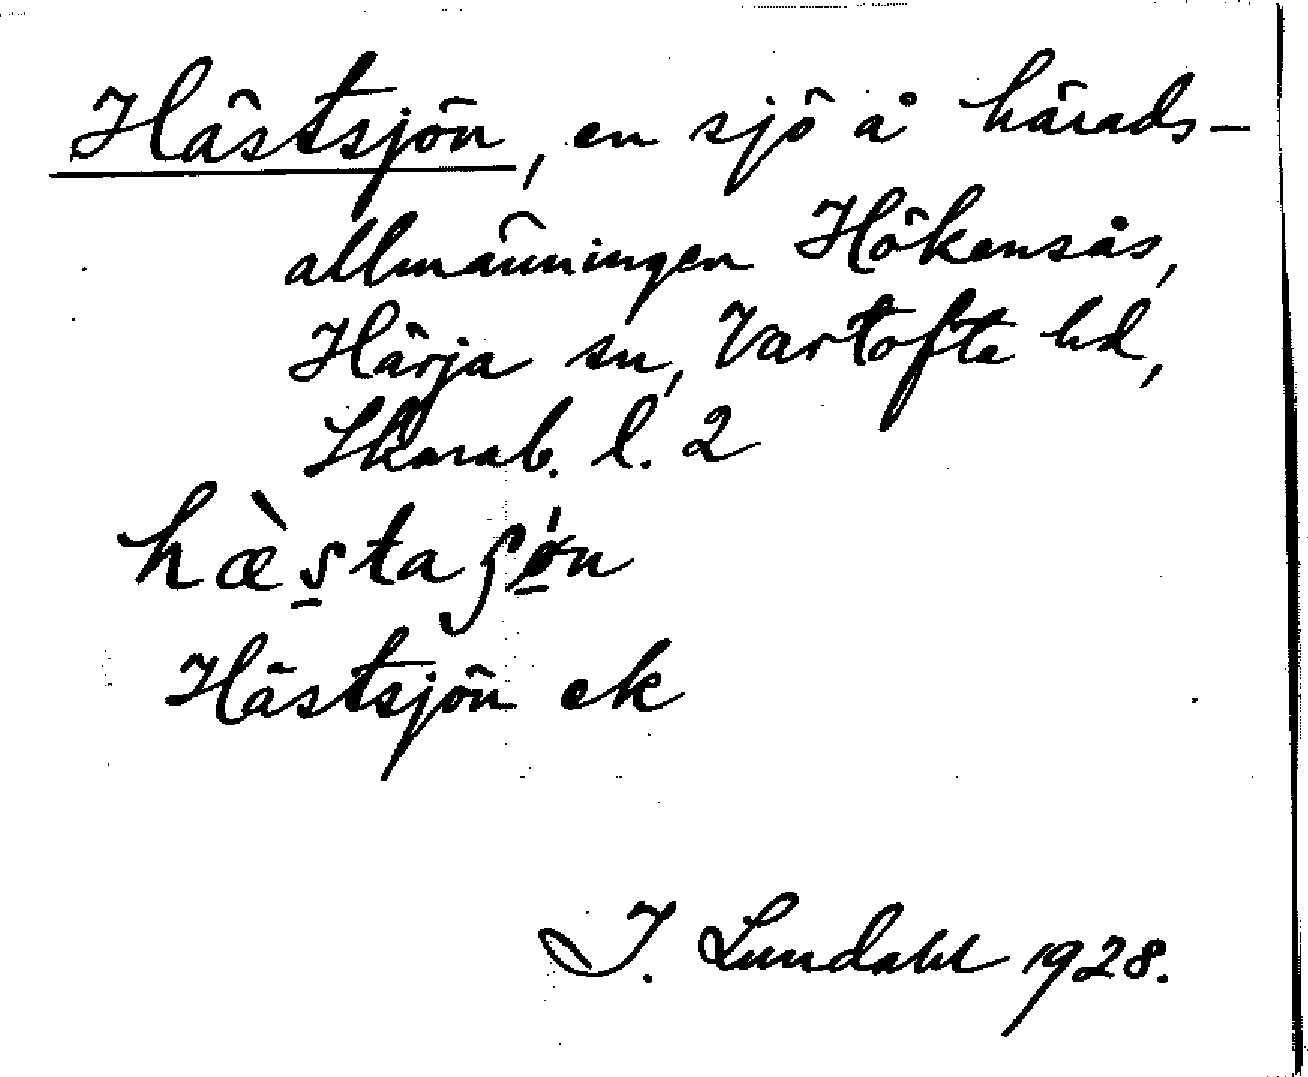 Hästsjön, en sjö å härads-
allmänningen Hökensås,
Härja sn, Vartofta hd,
Skarab. l. 2
hæ̀s̠taʂǿ̠n
Hästsjön ek
I. Lundahl 1928.